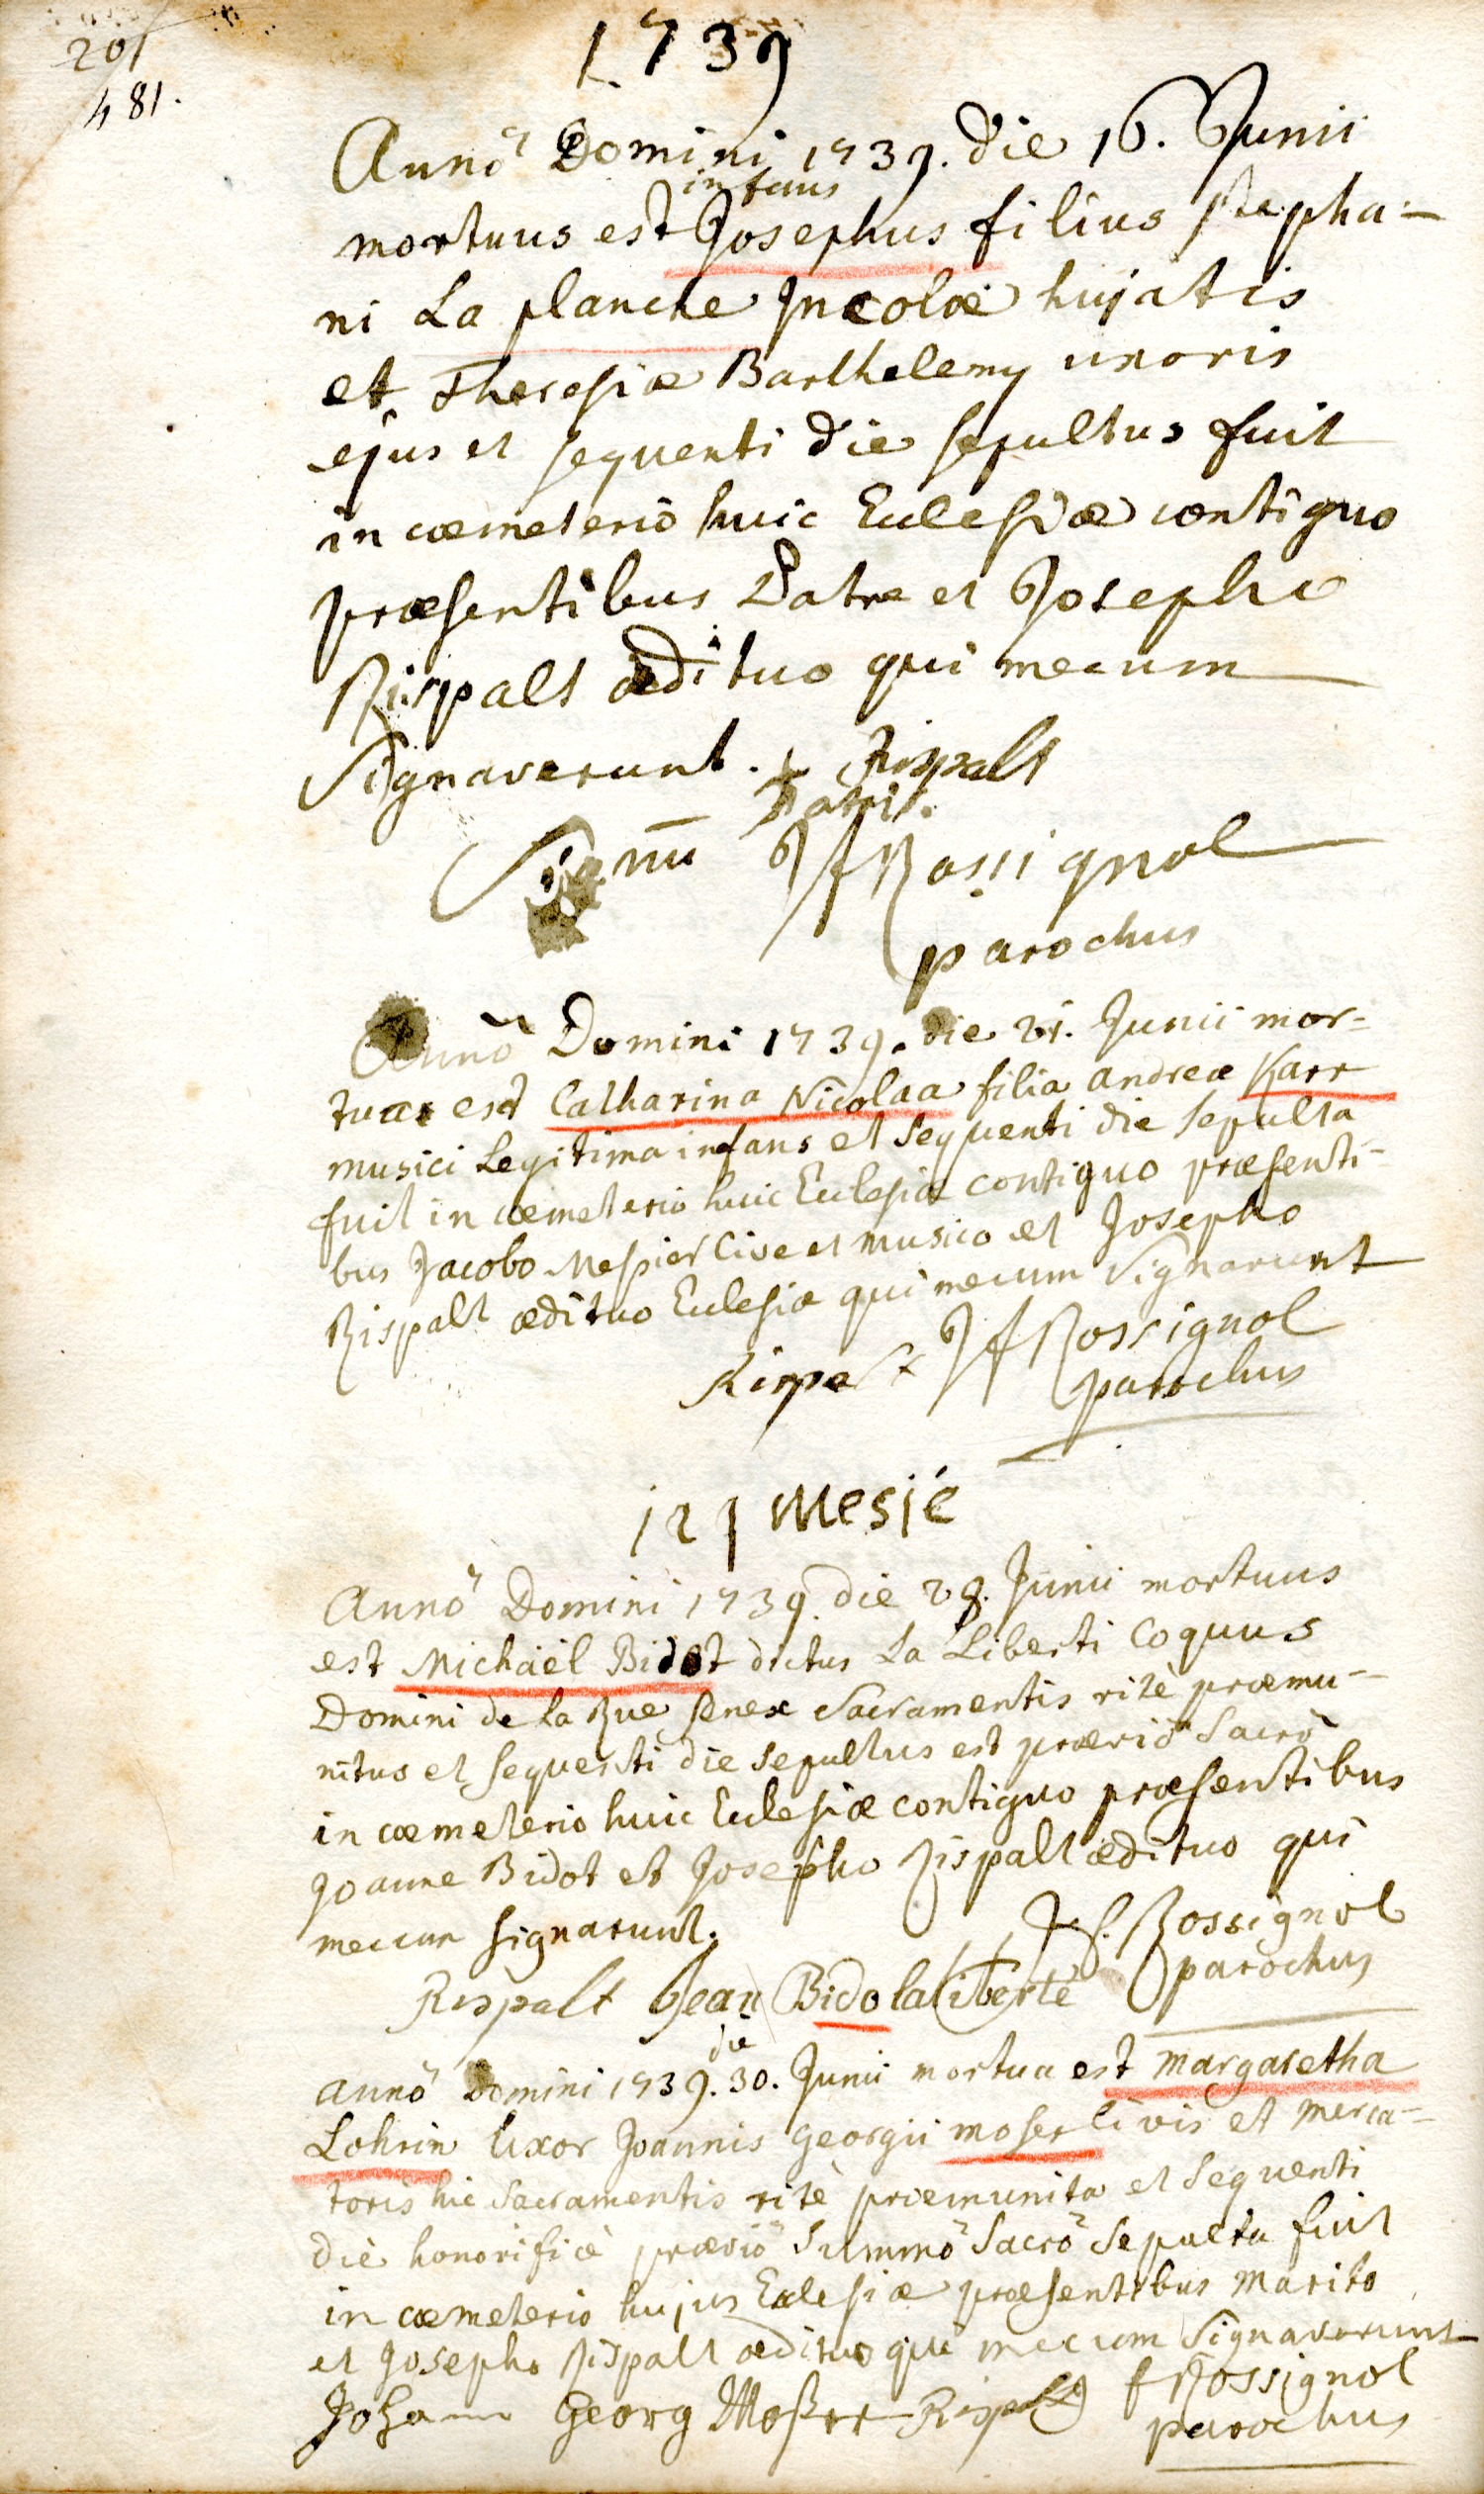 201
481.
1739
Annõ Domini 1739. die 16. Junii
infans
mortuus est Josephus filius stepha-
ni La planche Jncolæ hujatis
et Theresiæ Barthelemy uxoris
ejus et sequenti die sepultus fuit
in cœmeteriõ huic Eclesiæ contiguo
præsentibus Patre et Josepho
Rispalt ædituo qui mecum
Signaverunt. + Rispalt
patris.
Signū JfRossignol
parochus
Annõ Domini 1739. die 21. Junii mor-
tua est Catharina Nicolaa filia andreæ Karr
musici Legitima infans et Sequenti die Sepulta
fuit in cœmeterio huic Eclesiæ contiguo præsenti-
bus Jacobo Messier Cive et musico et Josepho
Rispalt ædituo Eclesiæ qui mecum Signarunt
Rispalt JfRossignol
parochus
Mesié
Annõ Domini 1739. die 28. Junii mortuus
est Michaël Bidot dictus La Liberti Coquus
Domini de la Rue senex Sacramentis ritè præmu-
nitus et sequenti die Sepultus est præviõ Sacrõ
in cœmeterio huic Eclesiæ contiguo præsentibus
Joanne Bidot et Josepho Rispalt ædituo qui
mecum signarunt. J.f. Rossignol
parochus
Rispalt Jean Bido laliberté
die
annõ Domini 1739. 30. Junii mortua est Margaretha
Lohrin Uxor Joannis Georgii moser Civis et merca-
toris hic Sacramentis ritè præmunita et Sequenti
die honorificè præviõ Summõ Sacrõ Sepulta fuit
in cœmeterio hujus Eclesiæ præsentibus Marito
et Josepho Rispalt ædituo qui mecum Signaverunt
Johann Georg Moßer Rispalt fRossignol
parochus